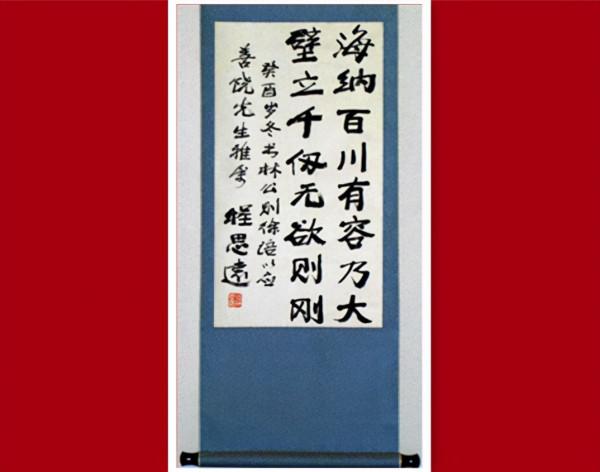 海纳百川有容乃大
壁立千仞无欲则刚
癸酉岁冬书林公则徐语以应
善饶先生雅属
程思远